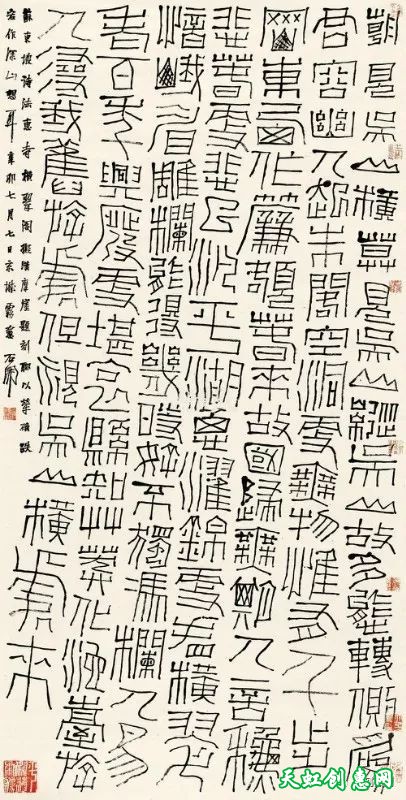 朝見吳山橫莫見吳山縱吳山故多態轉側為
君容幽人起朱閣空洞更無物惟有千步
岡東西作簾額春來故國歸無期人言穐
悲春更悲已泛平湖思濯錦更看橫翠
憶峨眉雕欄能得幾時好不獨馮欄人易
老百年興廢更堪哀縣知艸莽化池臺游
人尋我舊游處但覓吳山橫處來
蘇東坡詩法惠寺橫翠閣擬漢摩崖題刻聊以筆墨跌
宕作深山想耳辛卯七月七日京 石開
天虹创意网